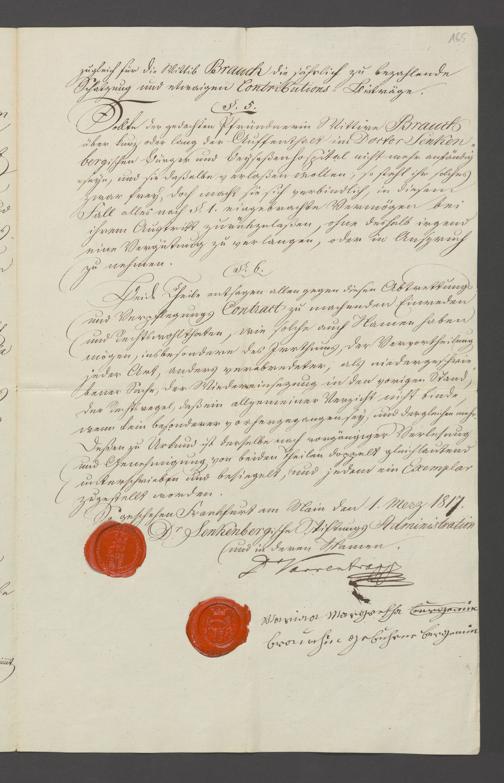 165
zugleich für die Wittib Brauch die jährlich zu bezahlende
Schatzung und etwaigen Contributions Beiträge.
§. 5.
Sollte der gedachten Pfründnerin Wittwe Brauch
über kurz oder lang der Auffenthalt im Doctor Senken-
bergischen Bürger und Beysassenhospital nicht mehr anständig
seyn, und sie dasselbe verlassen wollen, so steht ihr solches
zwar frey, doch macht sie sich verbindlich, in diesem
Fall alles nach §. 1. eingebrachte Vermögen bei
ihrem Austritt zurückzulassen, ohne deshalb irgend
eine Vergütung zu verlangen, oder in Anspruch
zu nehmen.
§. 6.
Beide Theile entsagen allen gegen diesen Abtrettungs
und Verpflegungs Contract zu machenden Einreden
und Rechtswohlthaten, wie solche auch Namen haben
mögen, insbesondere des Irrthums, der Vervortheilung
jeder Art, anders verabredeter, als niedergeschrie-
bener Sache, der Wiedereinsezung in den vorigen Stand,
der Rechtsregel, daß ein allgemeiner Verzicht nicht binde,
wenn kein besonderer vorhergegangen sey, und dergleichen mehr.
Dessen zu Urkund ist derselbe nach vorgängiger Verlesung
und Genehmigung von beiden Theilen doppelt gleichlautend
unterschrieben und besiegelt, und jedem ein Exemplar
zugestellt worden.
So geschehen Frankfurt am Main den 1. Merz 1817.
Dr. Senkenbergische Stiftungs Administration
und in deren Namen.
Dr Varrentrapp
Mariaa Margretha
brauchin gebohrne bergemin